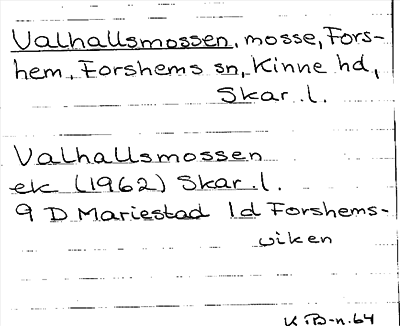 Valhallsmossen, mosse, Fors-
hem, Forshems sn, Kinne hd,
Skar. l.
Valhallsmossen
ek (1962) Skar. l.
9 D Mariestad 1d Forshems-
viken
K.B-n. 64